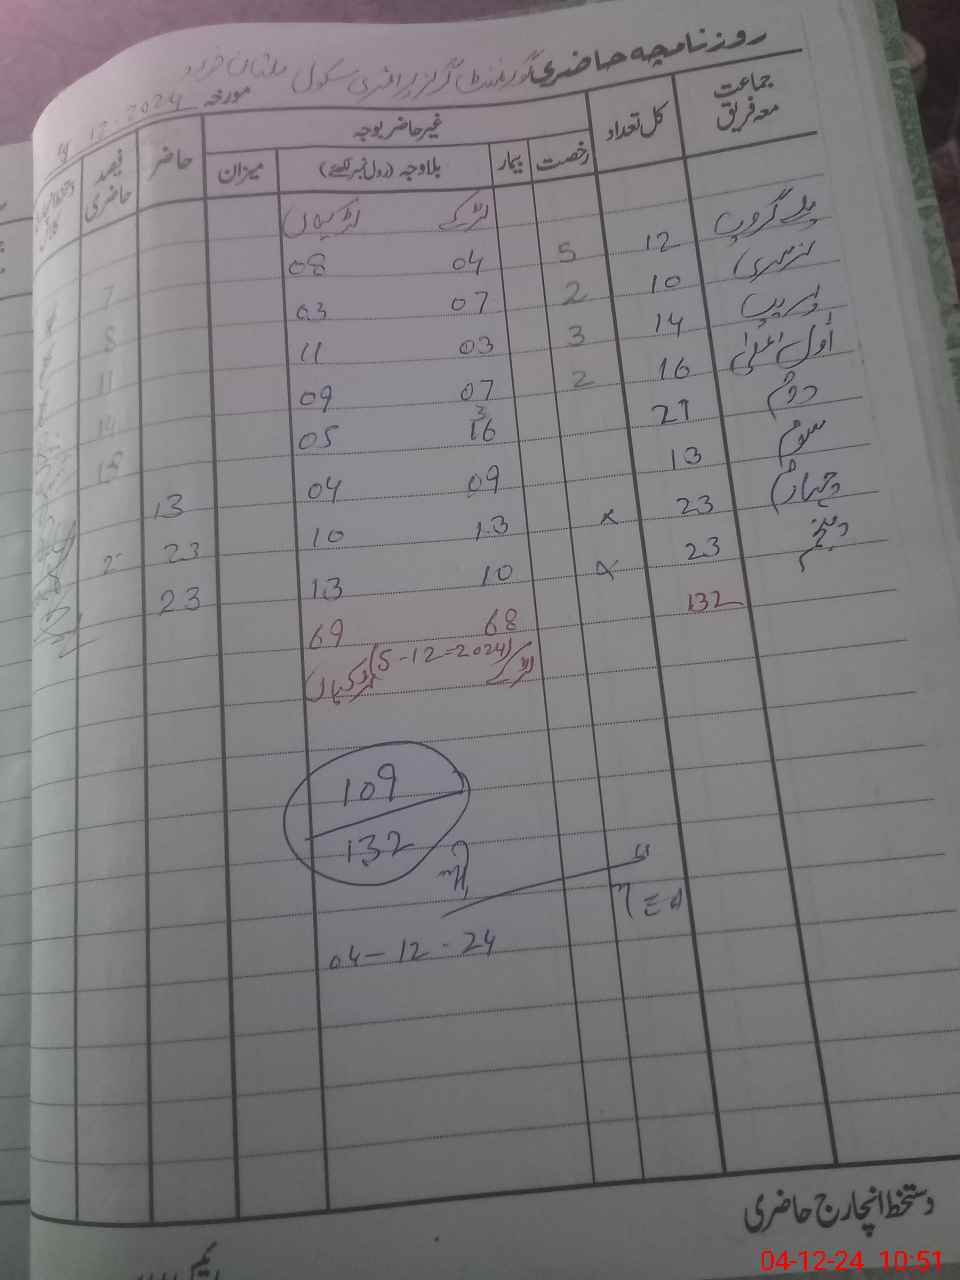 روزنامچہ حاضری گورنمنٹ گرلز پرائمری سکول ملتان
مورخہ 4-12-2024
جماعت معہ فریق کل تعداد غیر حاضر بوجہ حاضر فیصد حاضری
رخصت بیمار بلاوجہ (رول نمبر لکھئے) میزان
لڑکے لڑکیاں
پلے گروپ 12 5 04 08 7
نرسری 10 2 07 03 8
پریپ 14 3 03 11 11
اول اعلیٰ 16 2 07 09 14
دوئم 21 16 05 18
سوم 13 09 04 13
چہارم 23 x 13 10 23
پنجم 23 x 10 13 23
132 68 69
لڑکے (5-12-2024) لڑکیاں
109
132
04-12-24
دستخط انچارج حاضری
04-12-24 10:51